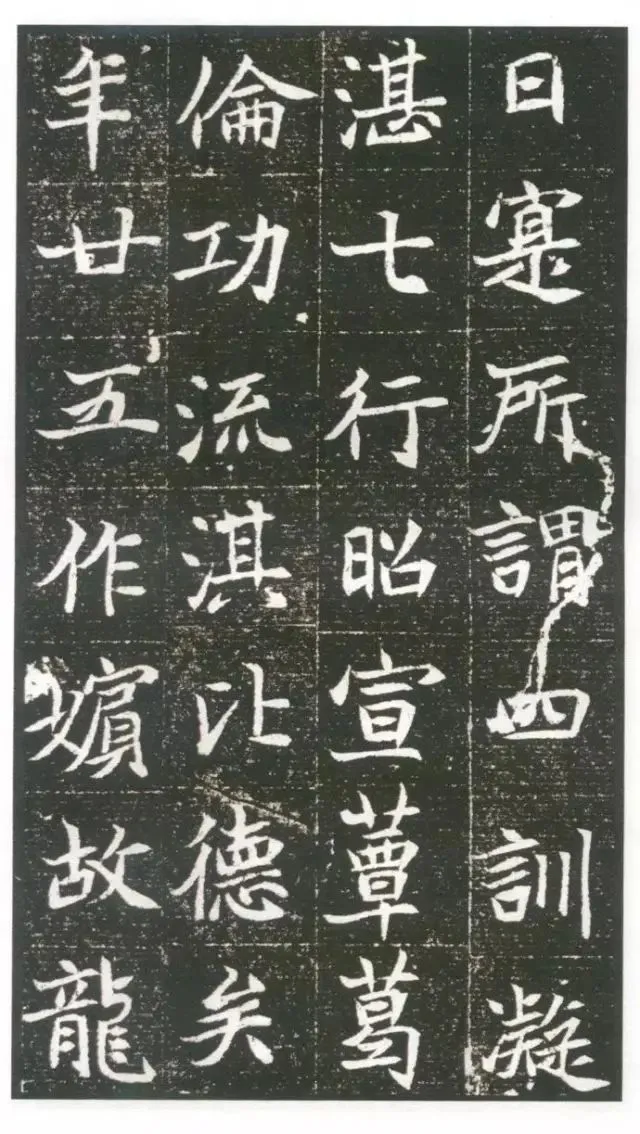 日寔所謂四訓凝
湛七行昭宣蕈葛
倫功流淇以德矣
年廿五作嬪故龍